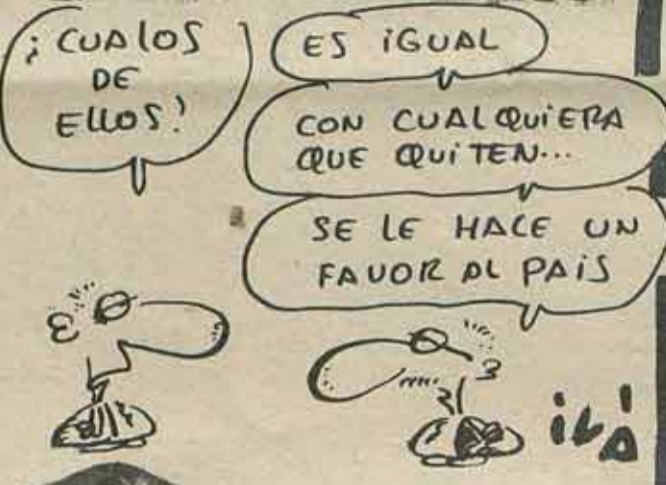 ¿CUALOS
DE
ELLOS?
ES iGUAL
CON CUALQUiERA
QUE QUiTEN...
SE LE HACE UN
FAVOR AL PAiS
iVÀ